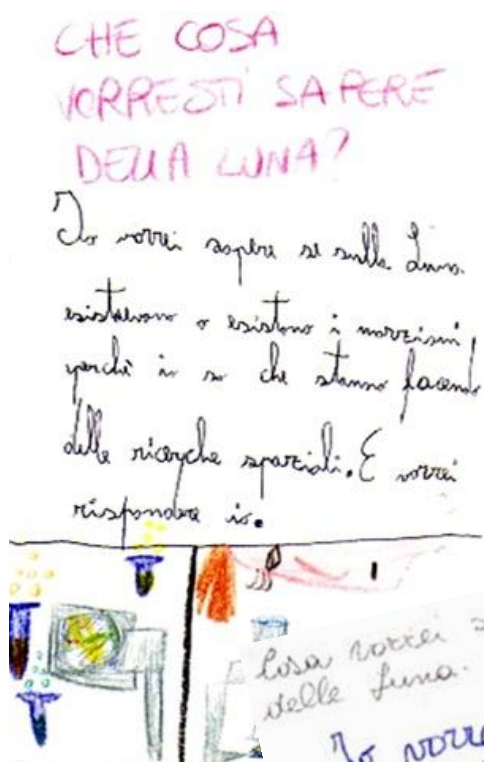 CHE COSA
VORRESTI SAPERE
DELLA LUNA?
Io vorrei sapere se sulla Luna
esistevano o esistono i marziani,
perchè io so che stanno facendo
delle ricerche spaziali. E vorrei
rispondere io.
Cosa vorrei
della Luna.
Io vorre